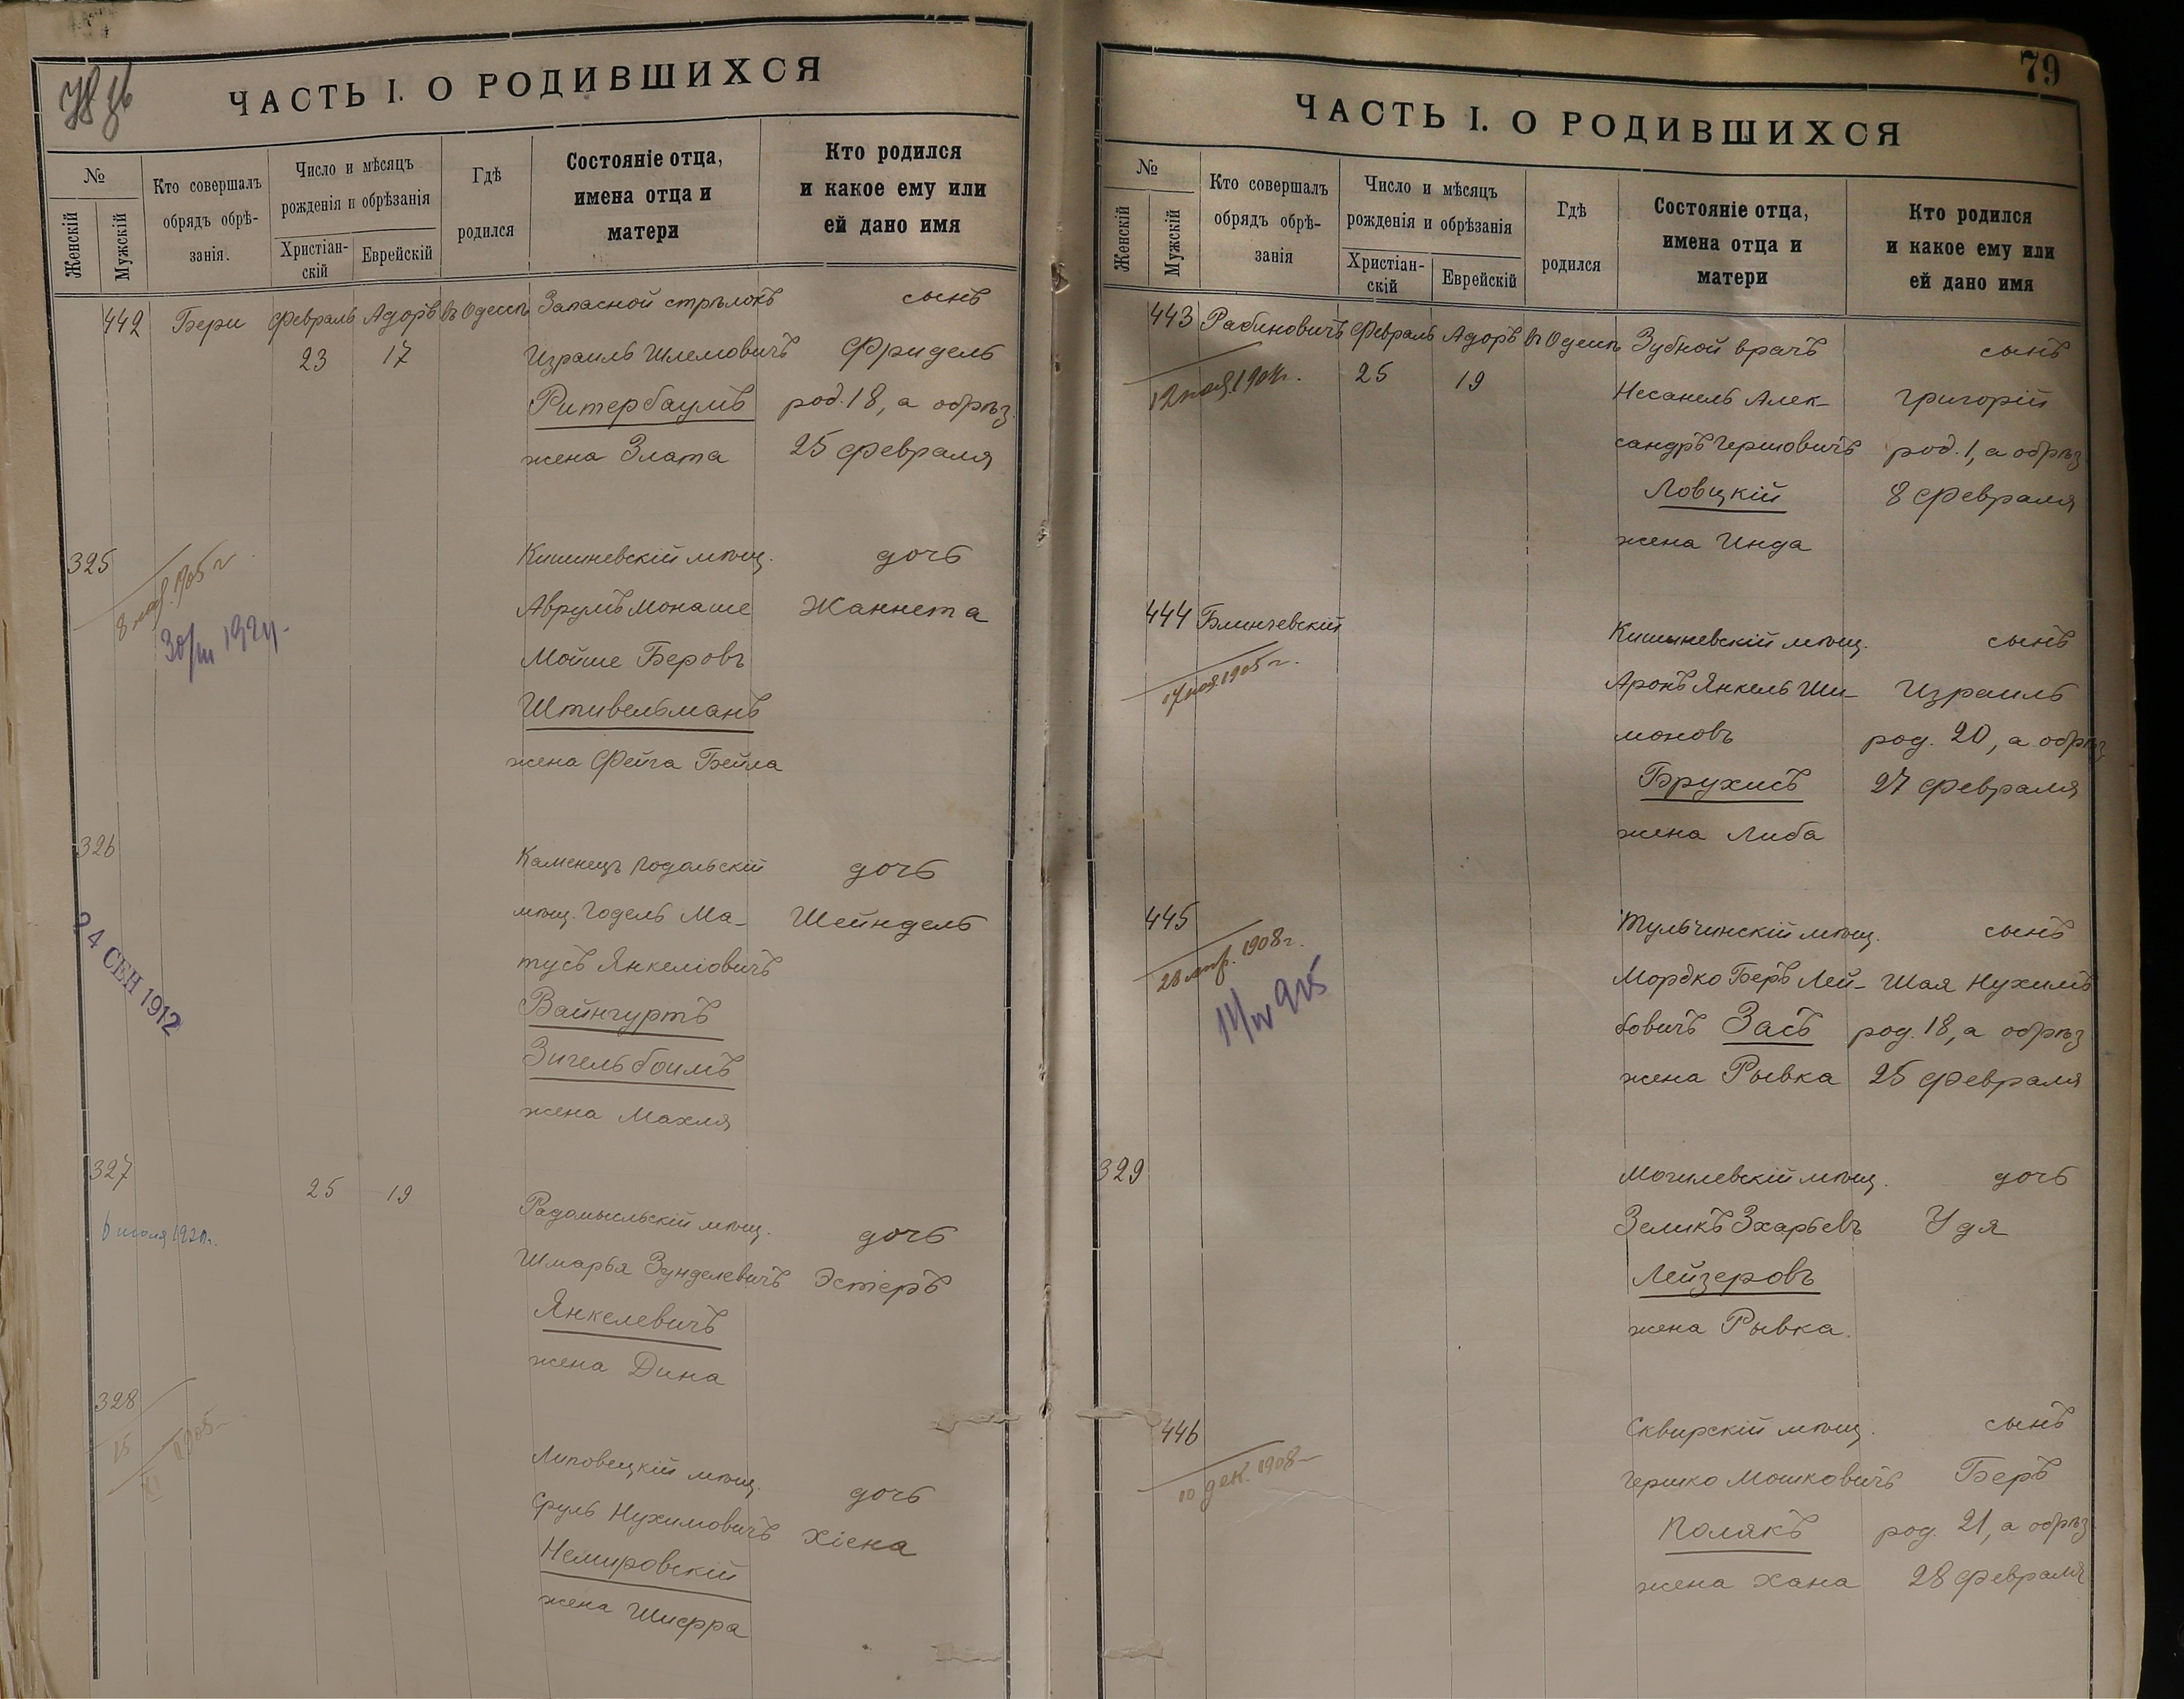 78 об
ЧАСТЬ I. О РОДИВШИХСЯ
№
Женскій
Мужскій
Кто совершалъ
обрядъ обрѣ-
занія.
Число и мѣсяцъ
рожденія и обрѣзанія
Христіан-
скій
Еврейскій
Гдѣ
родился
Состояніе отца,
имена отца и
матери
Кто родился
и какое ему или
ей дано имя
442 Бери Февраль Адоръ въ Одессѣ Запасной стрѣлокъ сынъ
23 17 Израиль Шлемовичъ Фридель
Ритербаумъ род. 18, а обрѣз.
жена Злата 25 Февраля
325 Кишиневскій мѣщ. дочь
Аврумъ Монаше Жаннета
8 1905 г.
30/III 192
Мойше Беровъ
Штивельманъ
жена Фейга Бейла
326 Каменецъ Подольскій дочь
мѣщ. Годель Ма- Шейндель
24 СЕН 1912
тусъ Янкеліовичъ
Вайнгуртъ
Зигельбоимъ
жена Махля
327 25 19 Радомысльскій мѣщ. дочь
Шмарья Зунделевичъ Эстеръ
Янкелевичъ
жена Дина
328
15 XI 1905
Липовецкій мѣщ. дочь
Сруль Нухимовичъ Хіена
Немировскій
жена Шифра
79
ЧАСТЬ I. О РОДИВШИХСЯ
№
Женскій
Мужскій
Кто совершалъ
обрядъ обрѣ-
занія
Число и мѣсяцъ
рожденія и обрѣзанія
Христіан-
скій
Еврейскій
Гдѣ
родился
Состояніе отца,
имена отца и
матери
Кто родился
и какое ему или
ей дано имя
443 Рабиновичъ Февраль Адоръ въ Одессѣ Зубной врачъ сынъ
25 19 Несанель Алек- Григорій
сандръ Гершовичъ род. 1, а обрѣз
Ловцкій 8 Февраля
жена Инда
444 Блинчевскій Кишиневскій мѣщ. сынъ
17 ноя. 1905 г.
Аронъ Янкель Ши- Израиль
моновъ род. 20, а обрѣз
Брухисъ 27 Февраля
жена Либа
445 Тульчинскій мѣщ. сынъ
1908 г.
Мордко Беръ Лей- Шая Нухимъ
бовичъ Засъ род. 18, а обрѣз
жена Рывка 25 Февраля
329 Могилевскій мѣщ. дочь
Зеликъ Зхарьевъ Удя
Лейзеровъ
жена Рывка.
446 Сквирскій мѣщ. сынъ
10 дек. 1908
Гершко Мошковичъ Беръ
Полякъ род. 21, а обрѣз
жена Хана 28 Февраля